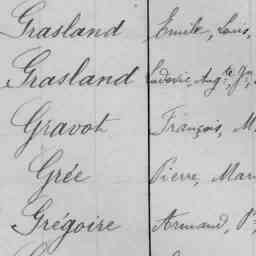 Grasland Emile, Louis,
Grasland Ludovic, Aug.te
Gravot François, M
Grée Pierre, Mar
Grégoire Armand, P